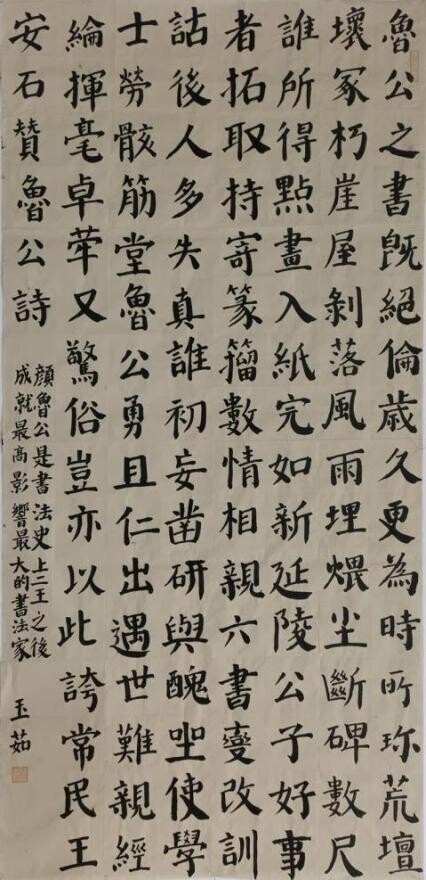 魯公之書既絕倫歲久更為時所珍荒壇
壞冢朽崖屋剝落風雨埋煨尘斷碑數尺
誰所得點畫入紙完如新延陵公子好事
者拓取持寄篆籀數情相親六書變改訓
詁後人多失真誰初妄鑿研與醜坐使學
士勞骸筋堂魯公勇且仁出遇世難親經
綸揮毫卓犖又驚俗豈亦以此誇常民王
安石贊魯公詩
顏魯公是書法史上二王之後
成就最高影響最大的書法家
玉茹